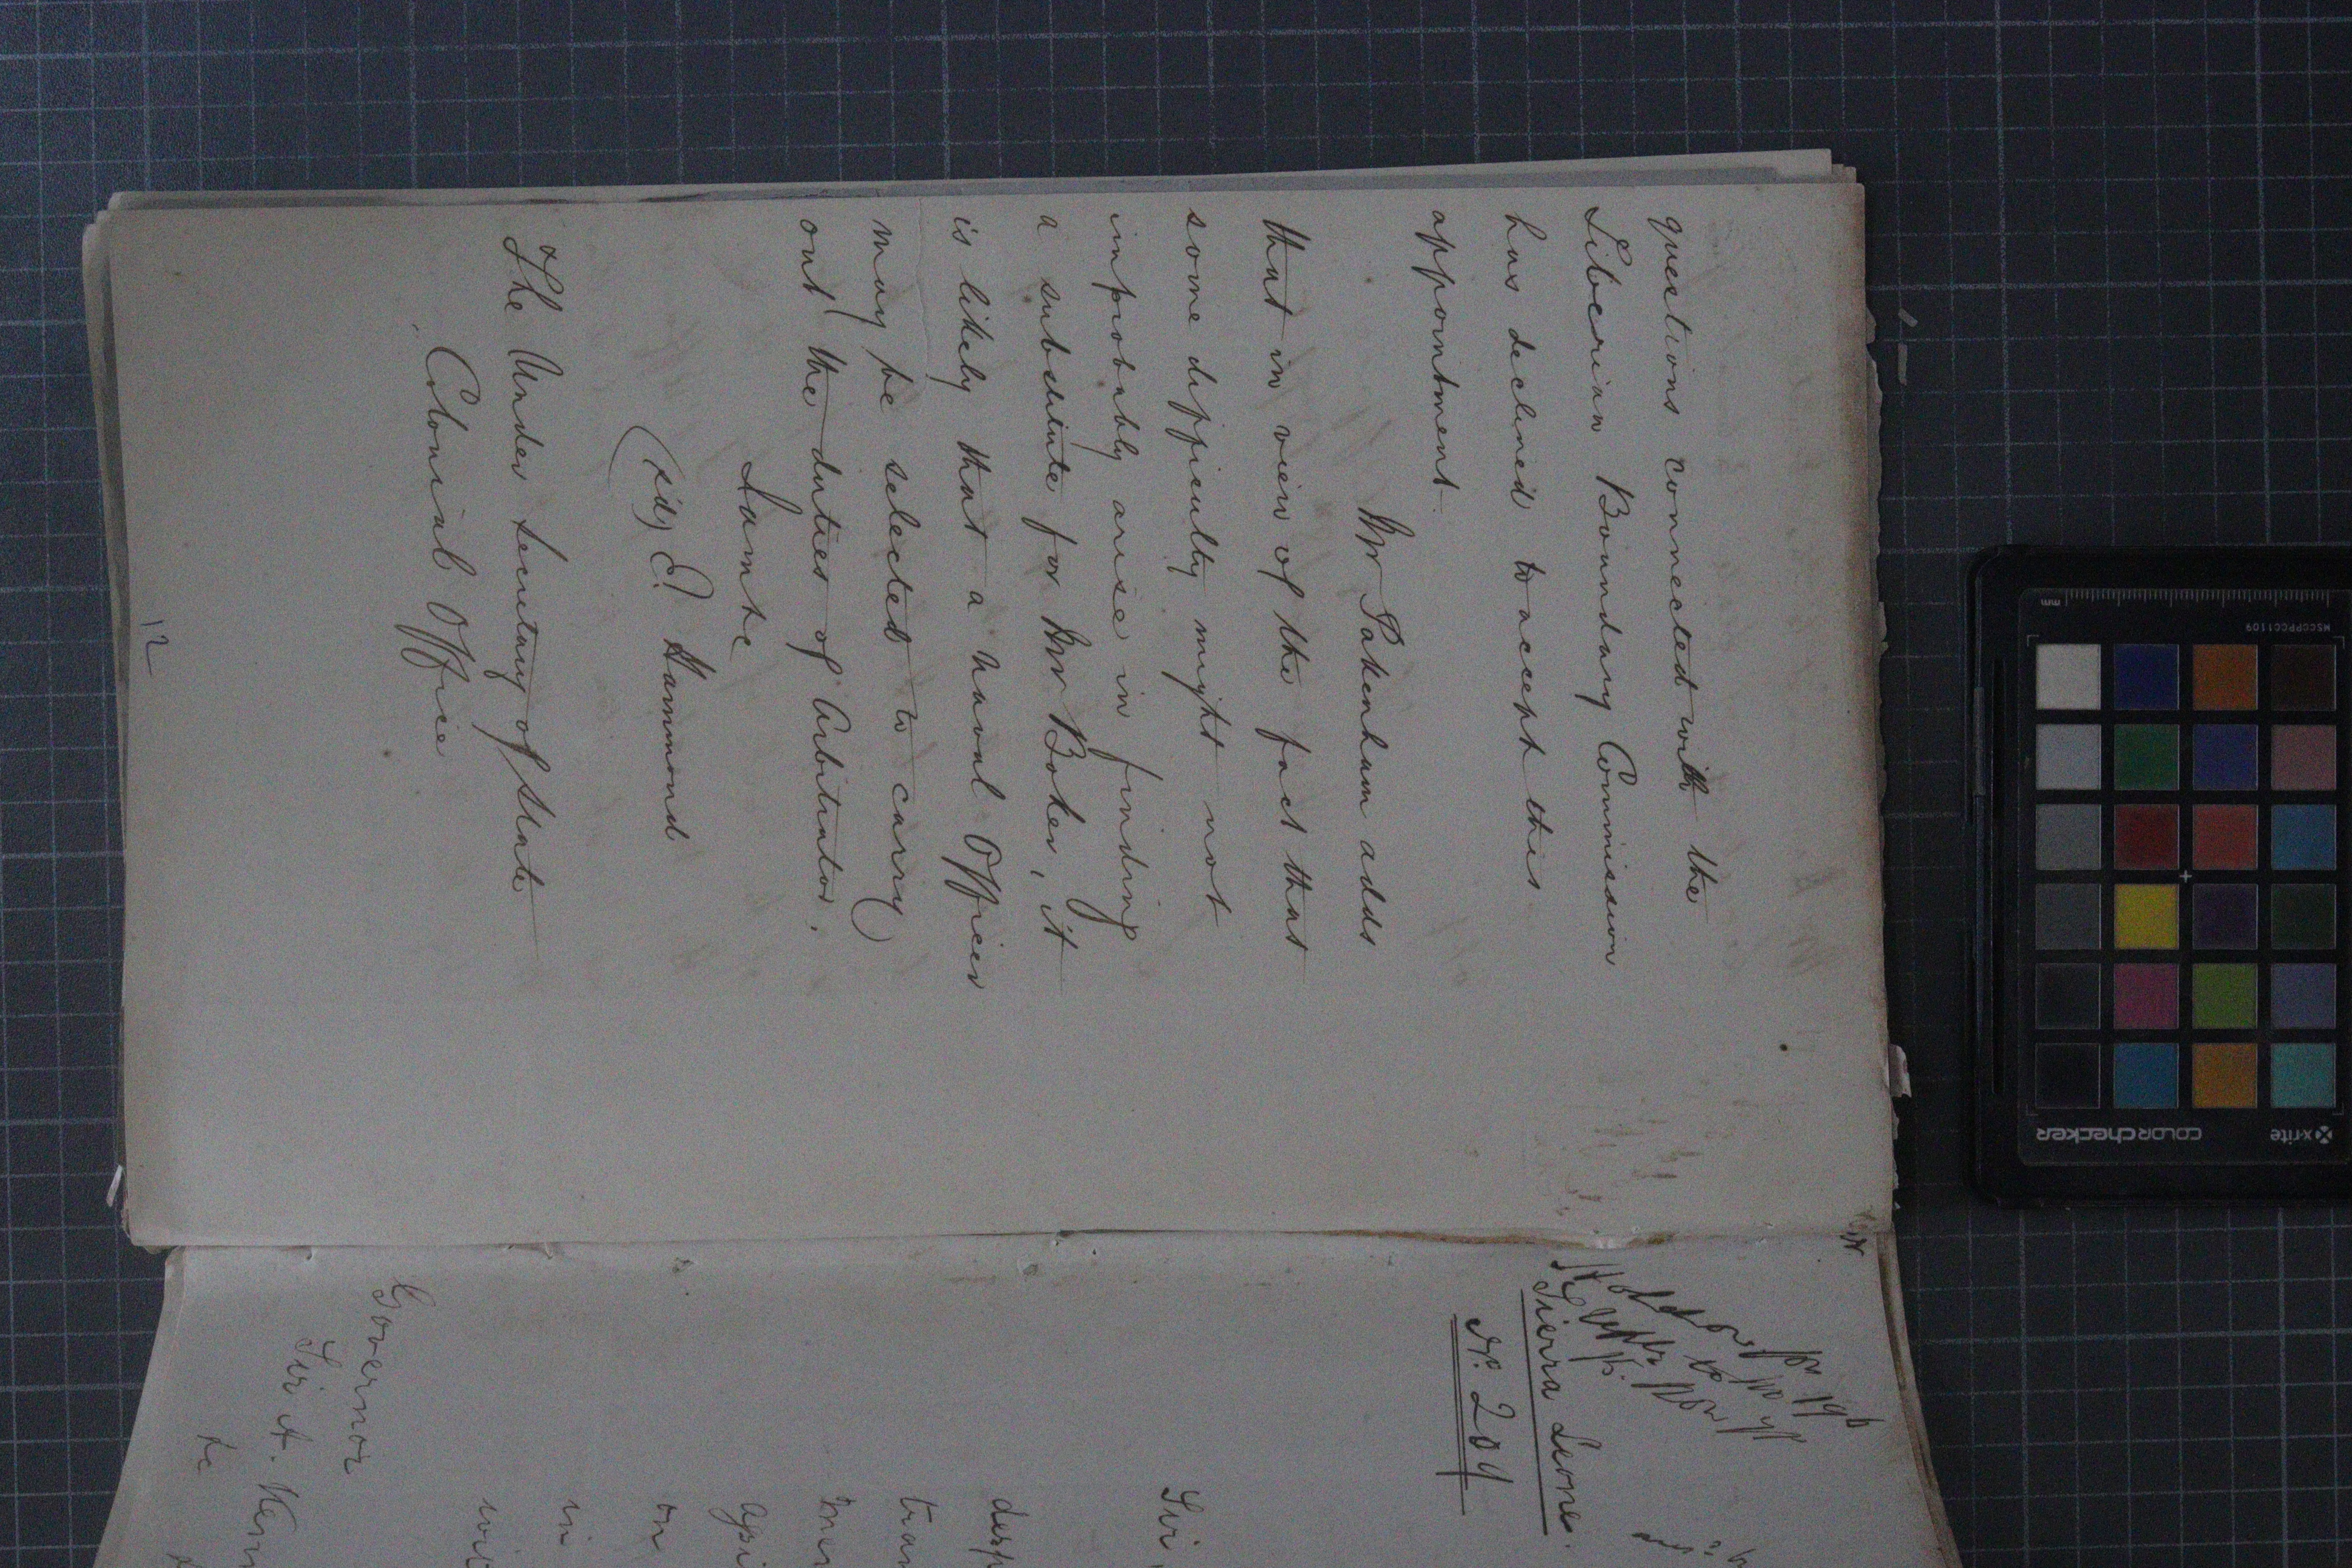 questions connected with the
Liberian Boundary Commission
has declined to accept this
appointment.
Mr Pakenham adds
that in view of the fact that
some difficulty might not
improbably arise in finding
a substitute for Mr Boker, it
is likely that a Naval Officer
may be selected to carry
out the duties of Arbitrator.
I am &c
(sd) E. Hammond
The Under Secretary of State
Colonial Office
12
Sierra Leone.
No 209
Sir,
desp
tran
on
in
Governor
Sir A. Kenn
&c
mm
MSCCPPCC1109
x-rite
colorchecker